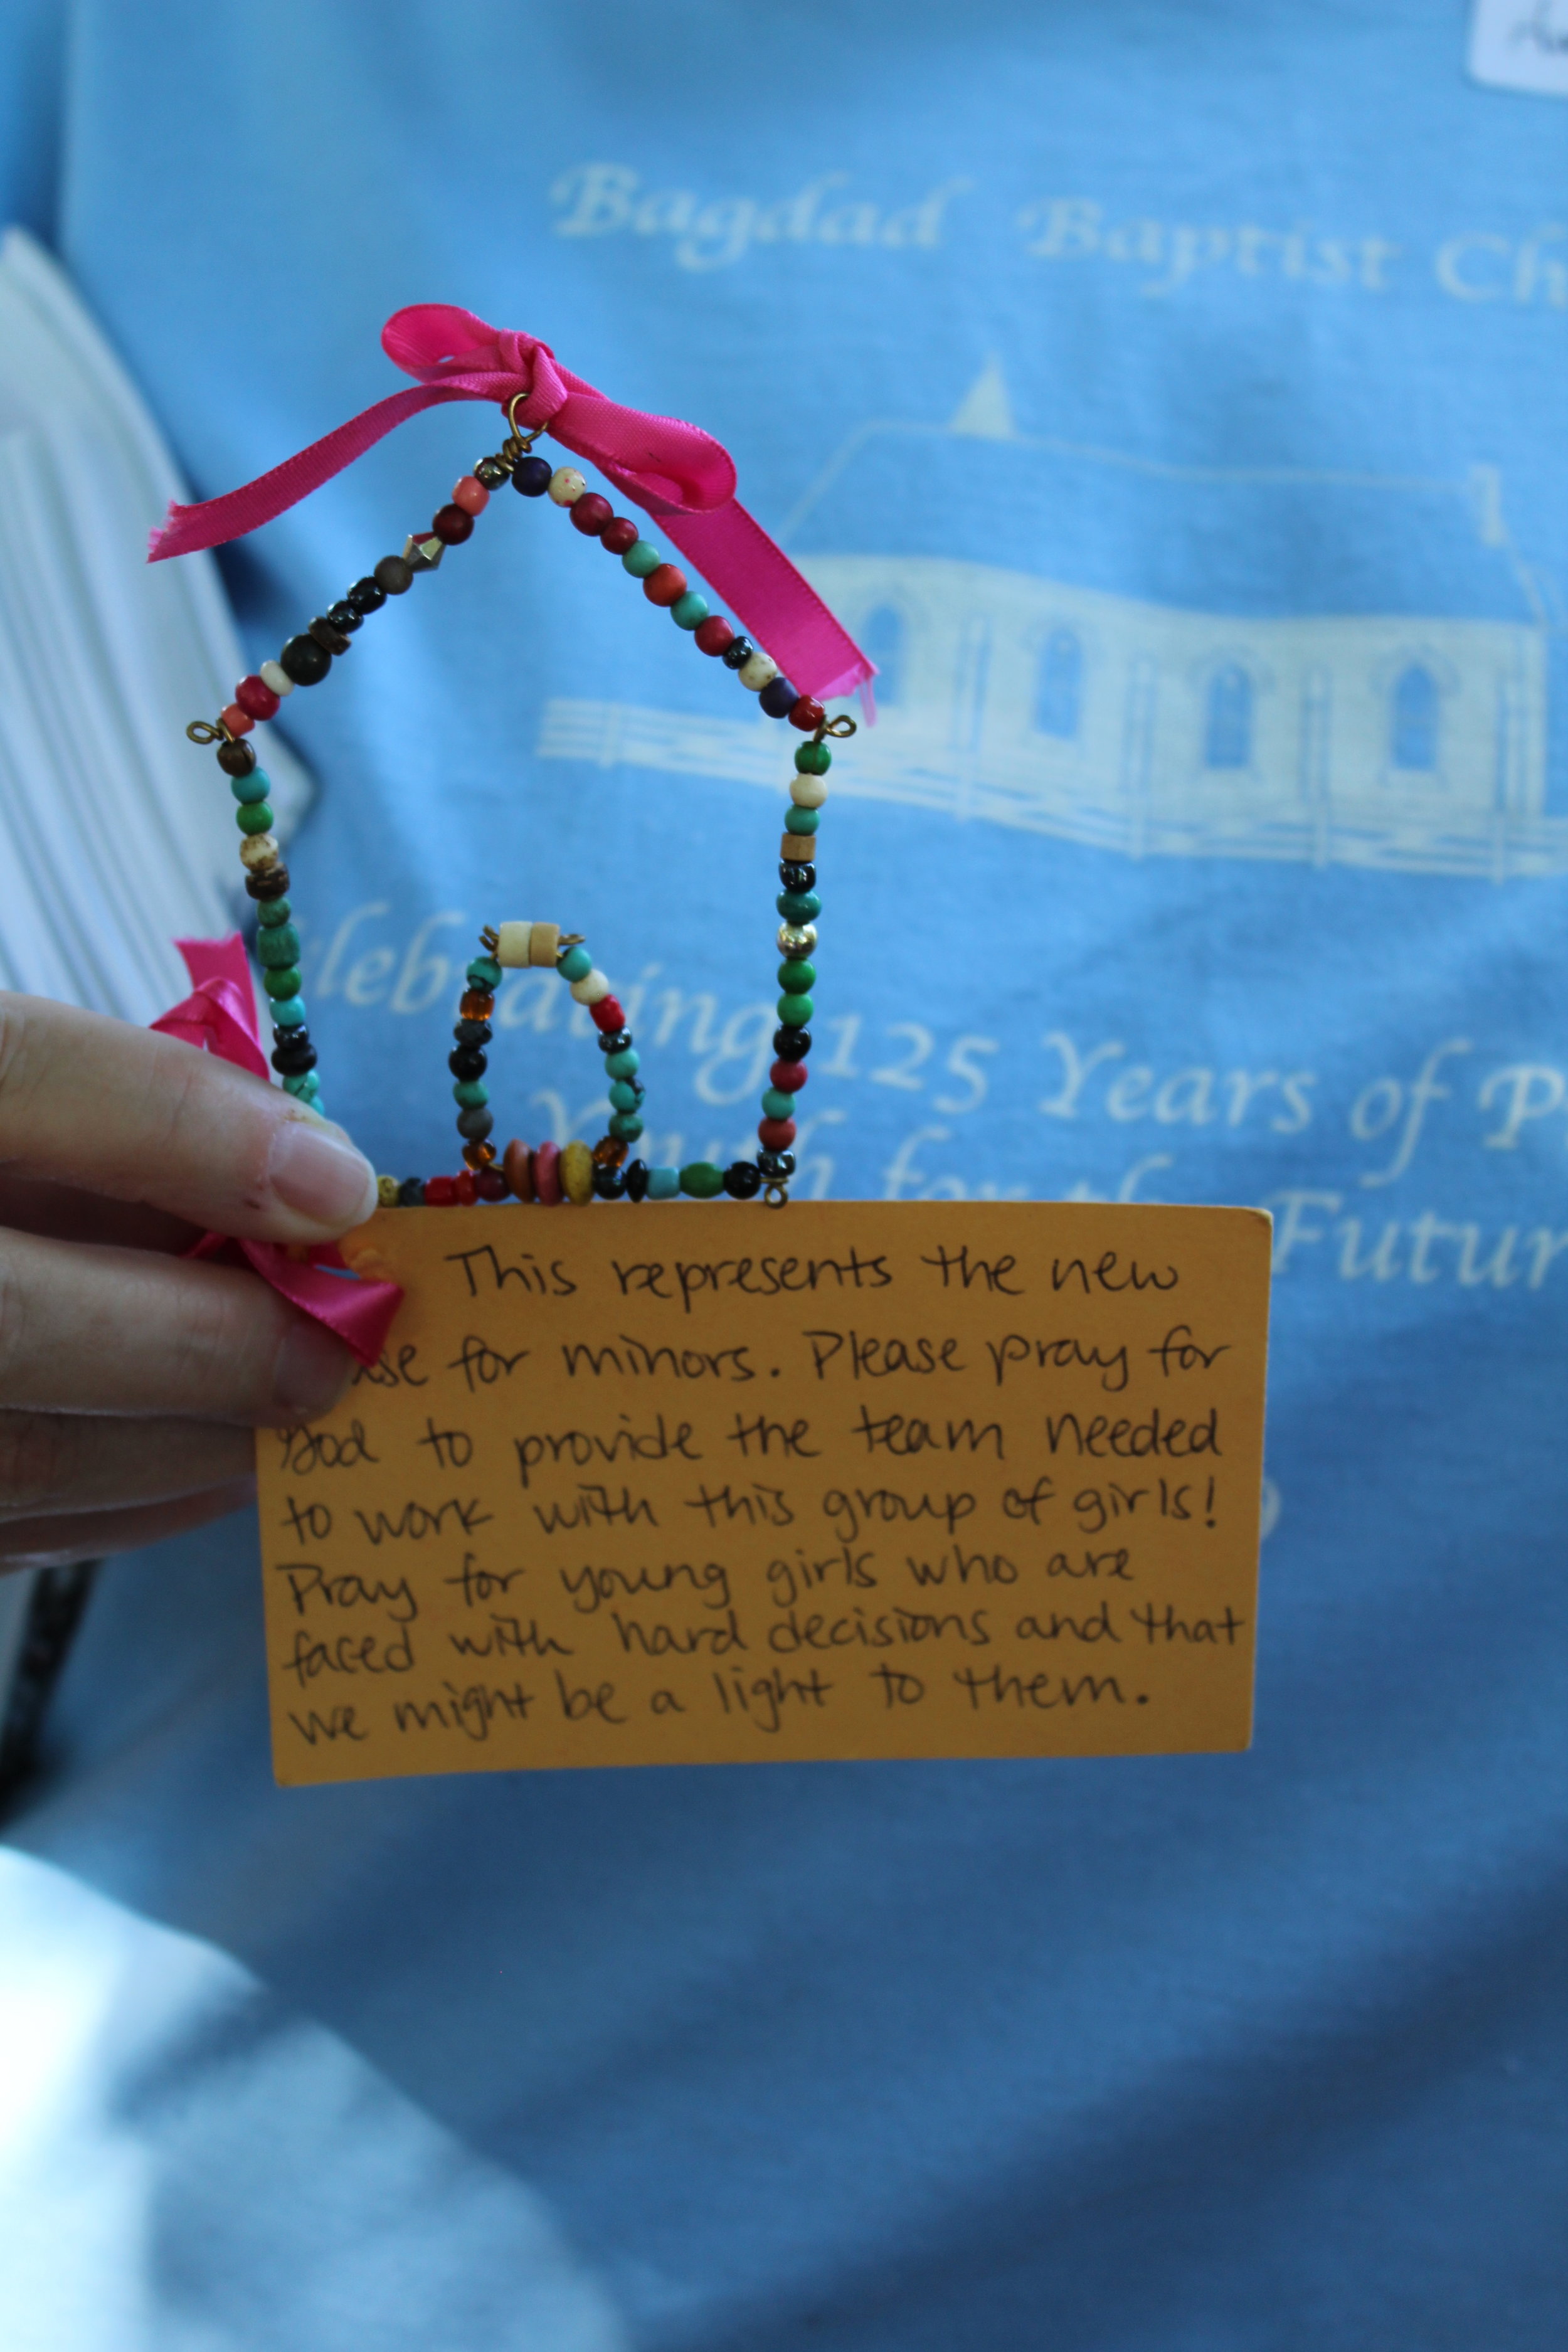 Bagdad Baptist Ch
Celebrating 125 Years of P
Youth for the Futur
This represents the new
use for minors. Please pray for
God to provide the team needed
to work with this group of girls!
Pray for young girls who are
faced with hard decisions and that
we might be a light to them.